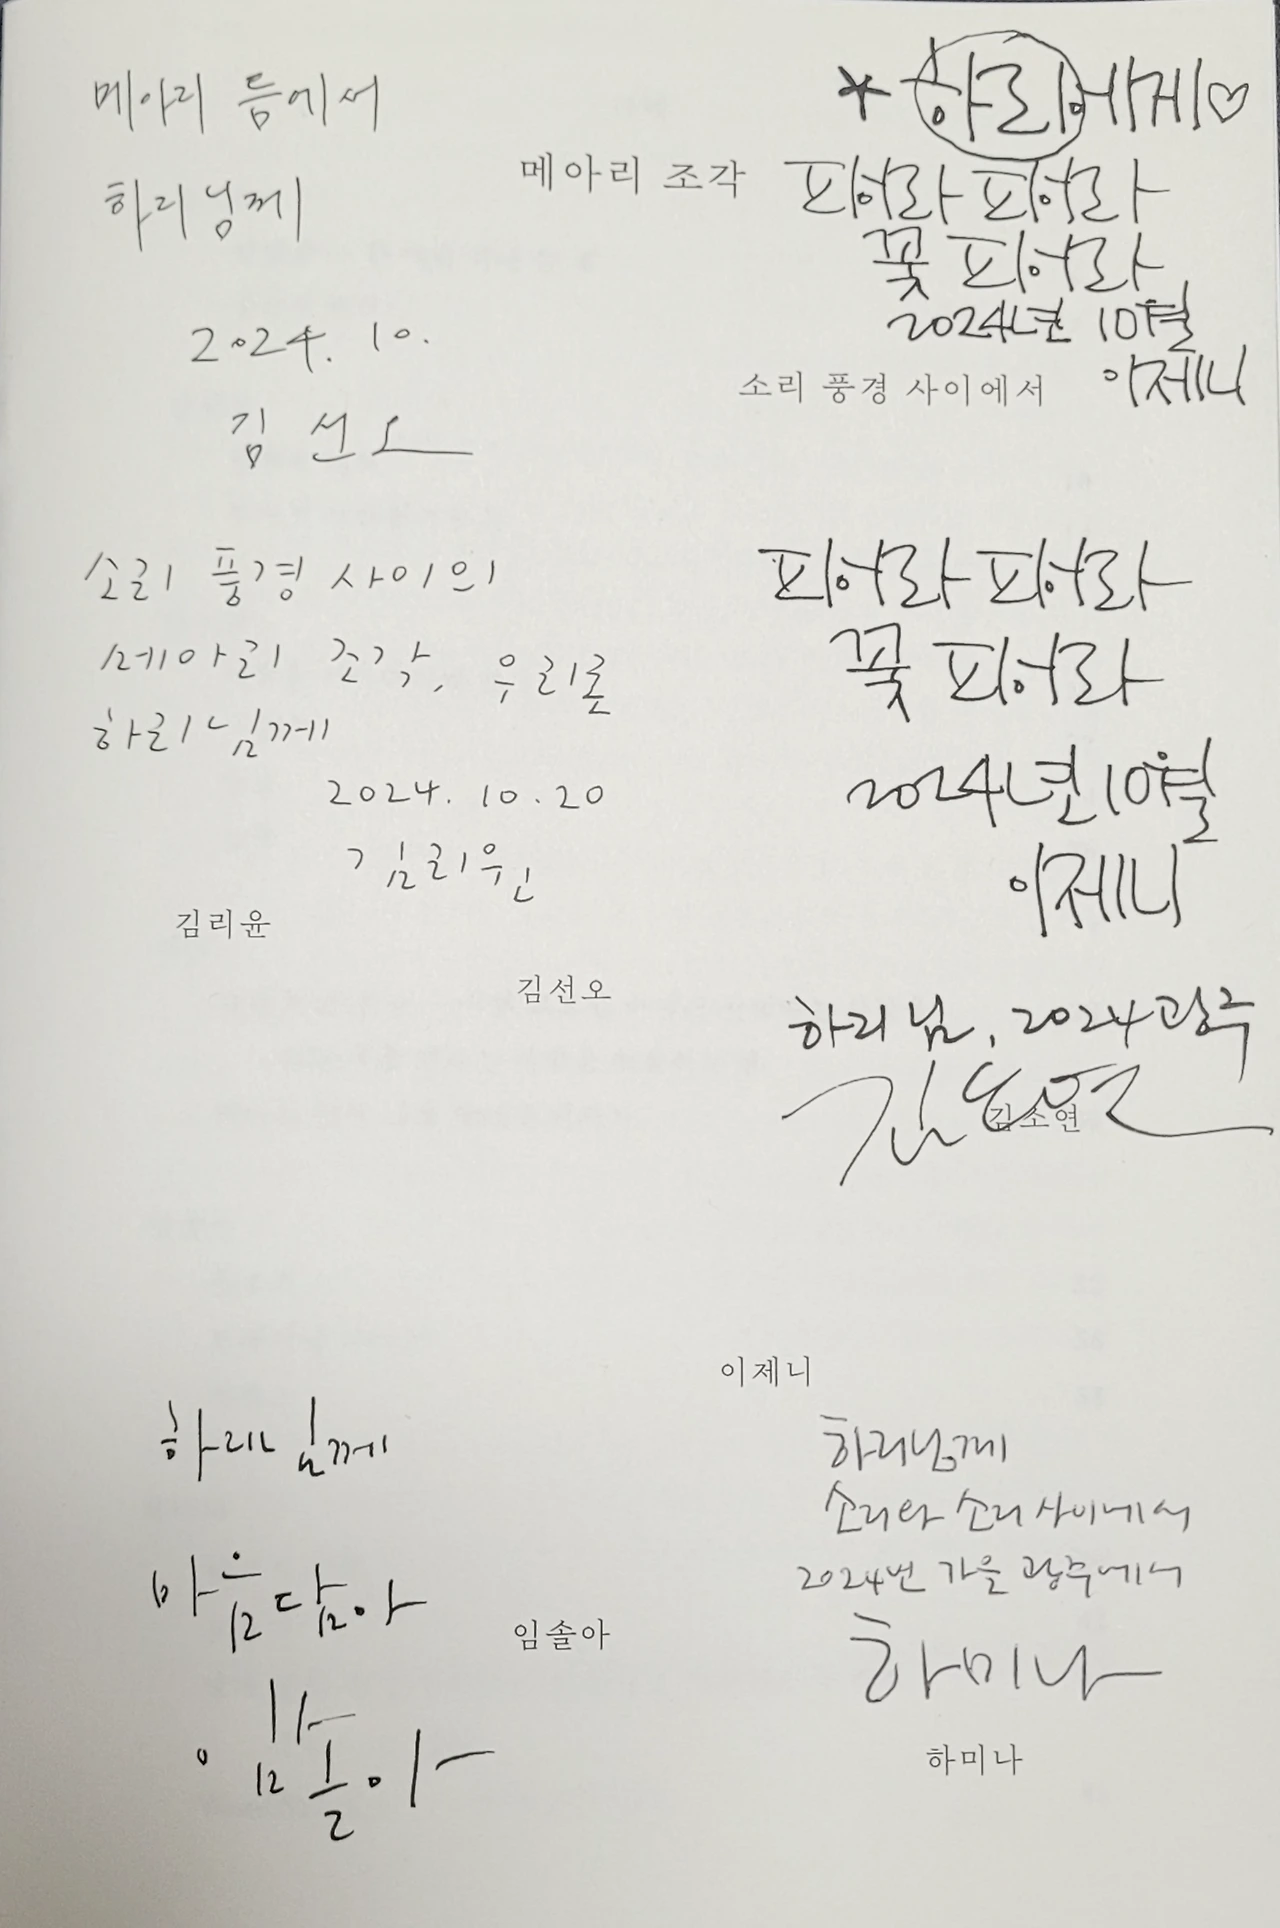 메아리 틈에서
하리님께
2024. 10.
김 선오
메아리 조각
* 하리에게♡
피어라 피어라
꽃 피어라
2024년 10월
이제니
소리 풍경 사이에서
소리 풍경 사이의
메아리 조각, 우리로
하리님께
2024. 10. 20
김리윤
김리윤
김선오
피어라 피어라
꽃 피어라
2024년 10월
이제니
하리님, 2024 광주
김소연
김소연
이제니
하리님께
마음 담아
임솔아
임솔아
하리님께
소리와 소리 사이에서
2024년 가을 광주에서
하미나
하미나